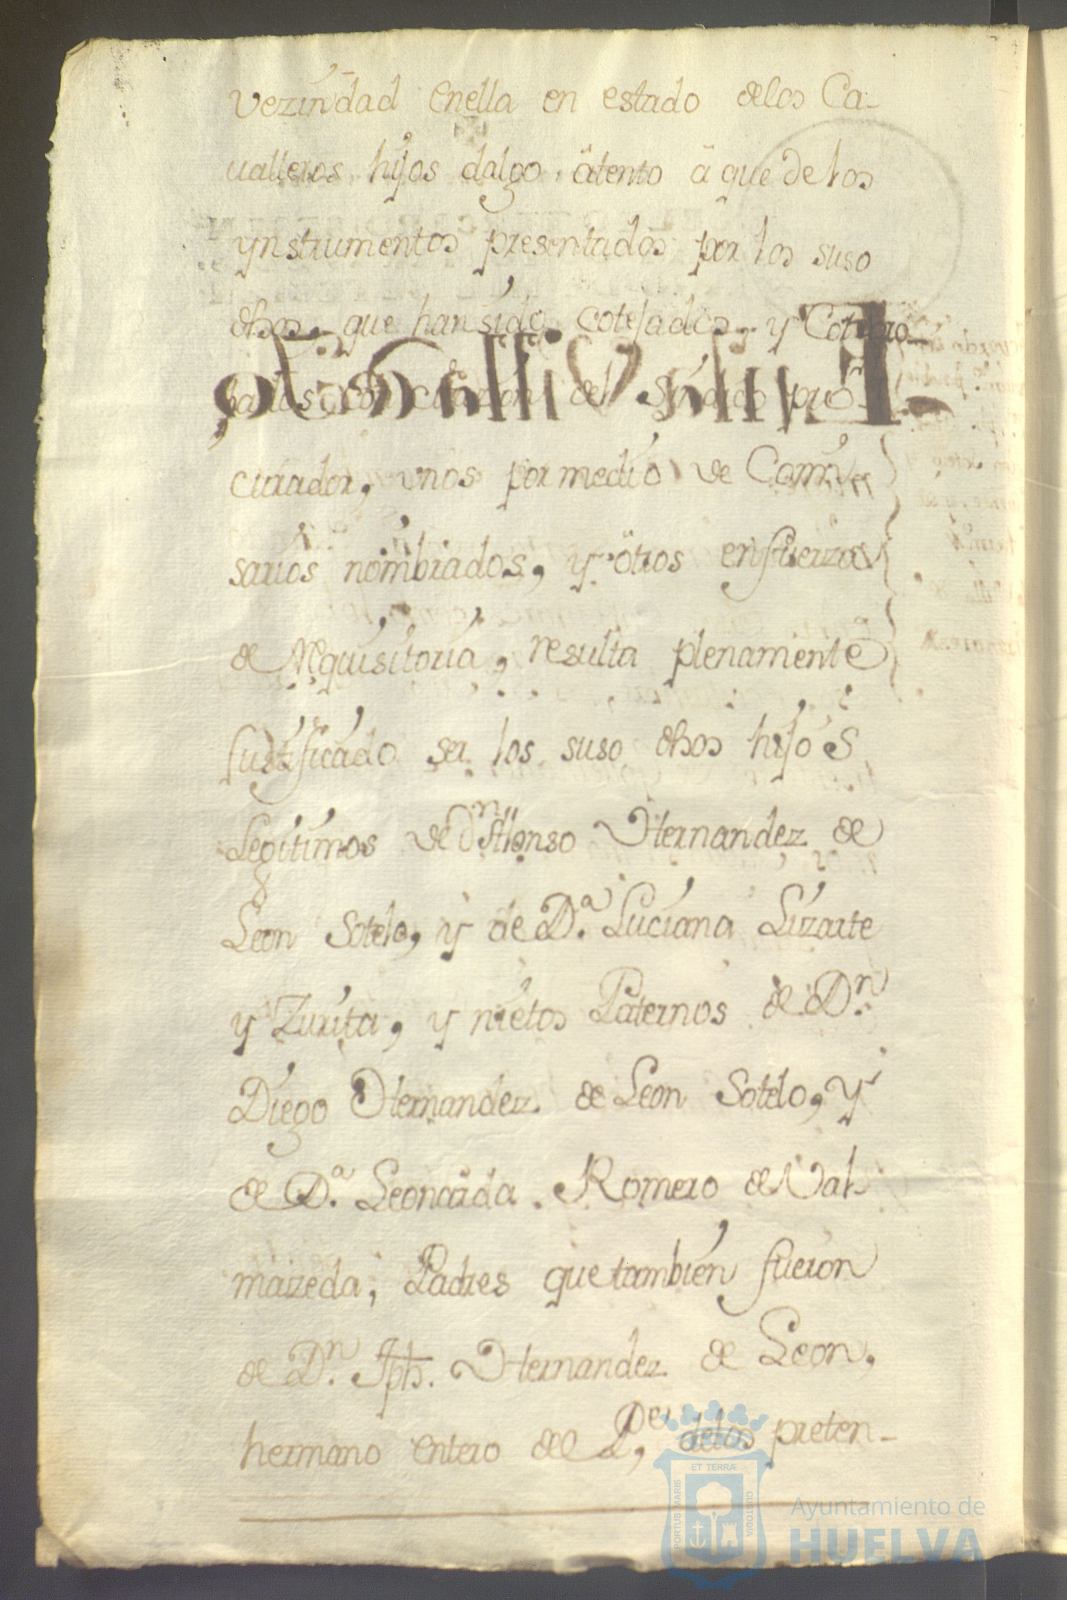 Vezindad enella en estado delos Ca-
ualleros hijos dalgo, atento a que de los
ynstrumentos presentados por los suso
dhos, que han sido cotejados, y Compro-
bados con citazion del Sindico pro-
curador, vnos por medio de Comi
sarios nombrados, y otros en fuerza
de Requisitoria, resulta plenamente
Justificado ser los suso dhos hijos
Legitimos de Dn Alonso Hernandez de
Leon Sotelo, y de D.ª Luciana Lizarte
y Zurita, y nietos Paternos de Dn
Diego Hernandez de Leon Sotelo, y
de D.ª Leonarda Romero de Val-
maizeda; Padres que tambien fueron
de Dn. Jph. Hernandez de Leon,
hermano entero del Pe, delos preten-
Ayuntamiento de
HUELVA
PORTUS MARIS
ET TERRÆ
CUSTODIA